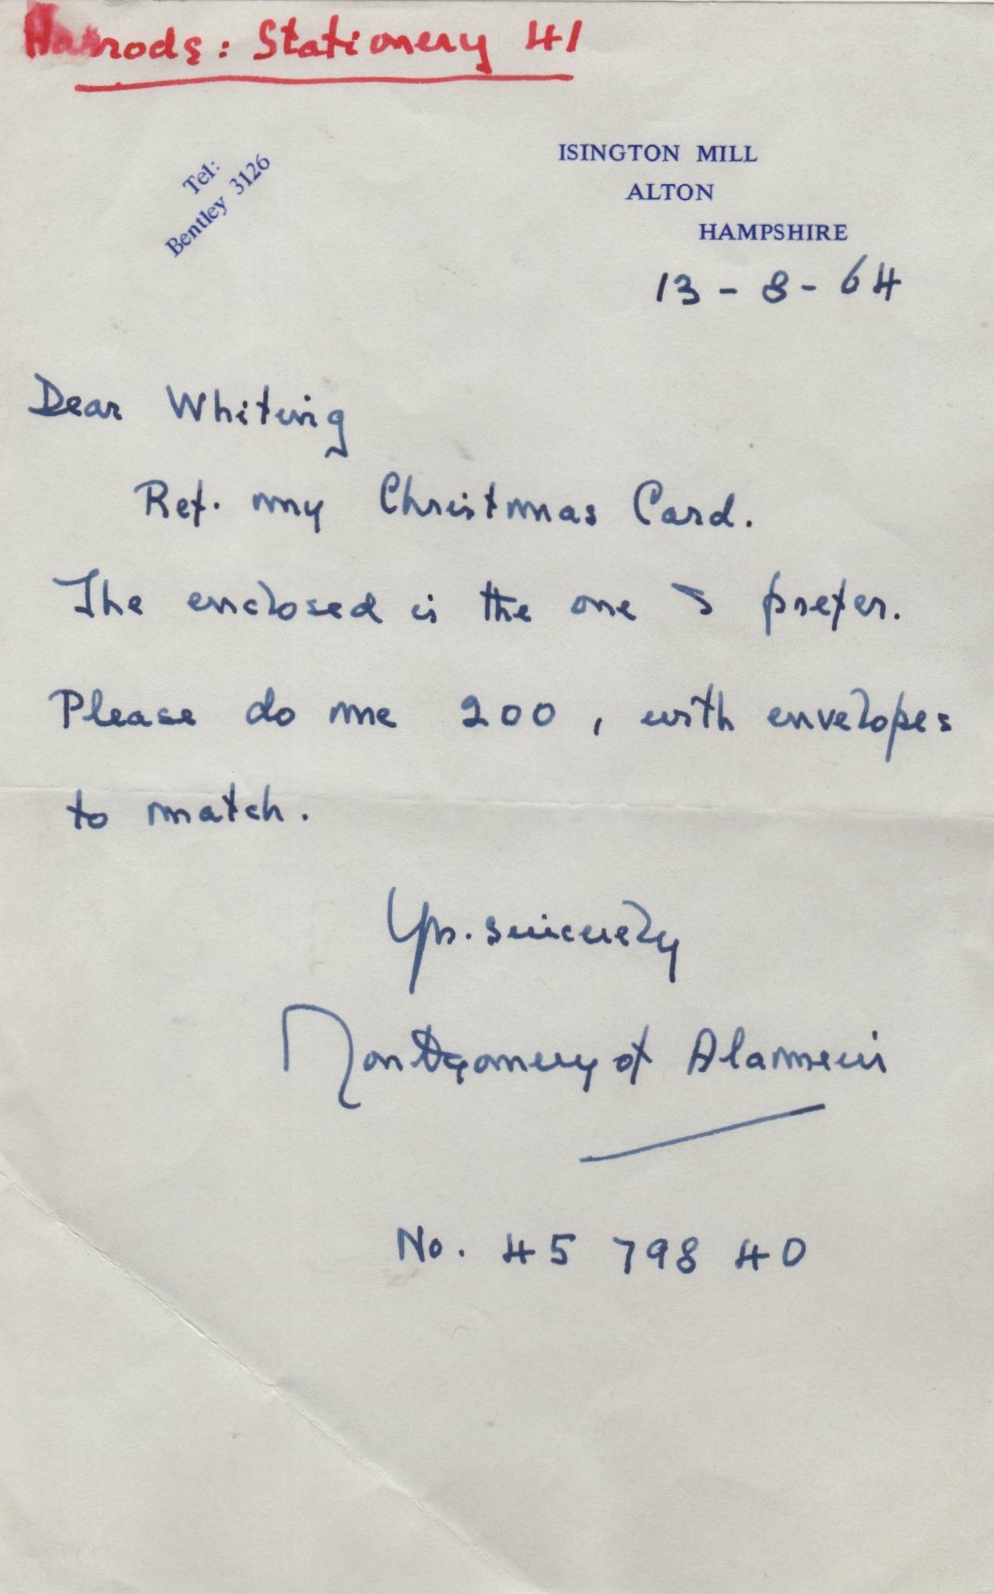 Harrods: Stationery 41
Tel:
Bentley 3126
ISINGTON MILL
ALTON
HAMPSHIRE
13 - 8 - 64
Dear Whiting
Ref. my Christmas Card.
The enclosed is the one I prefer.
Please do me 200, with envelopes
to match.
Yrs. sincerely
Montgomery of Alamein
No. 45 798 40